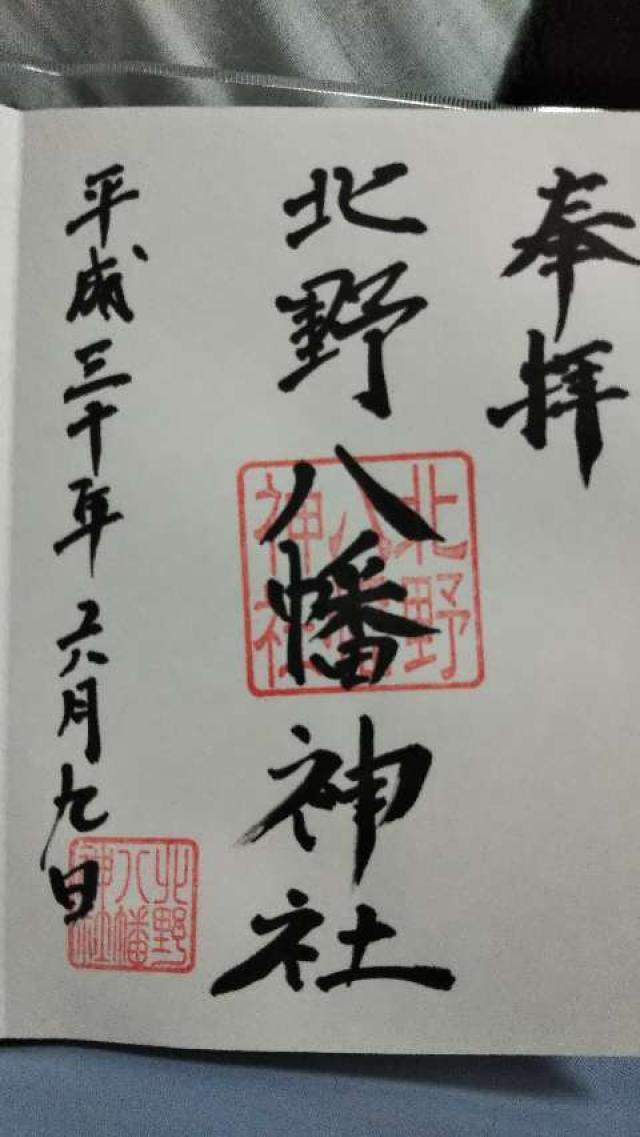 奉拝
北野八幡神社
平成三十年六月九日
北野
八幡
神社
北野
八幡
神社